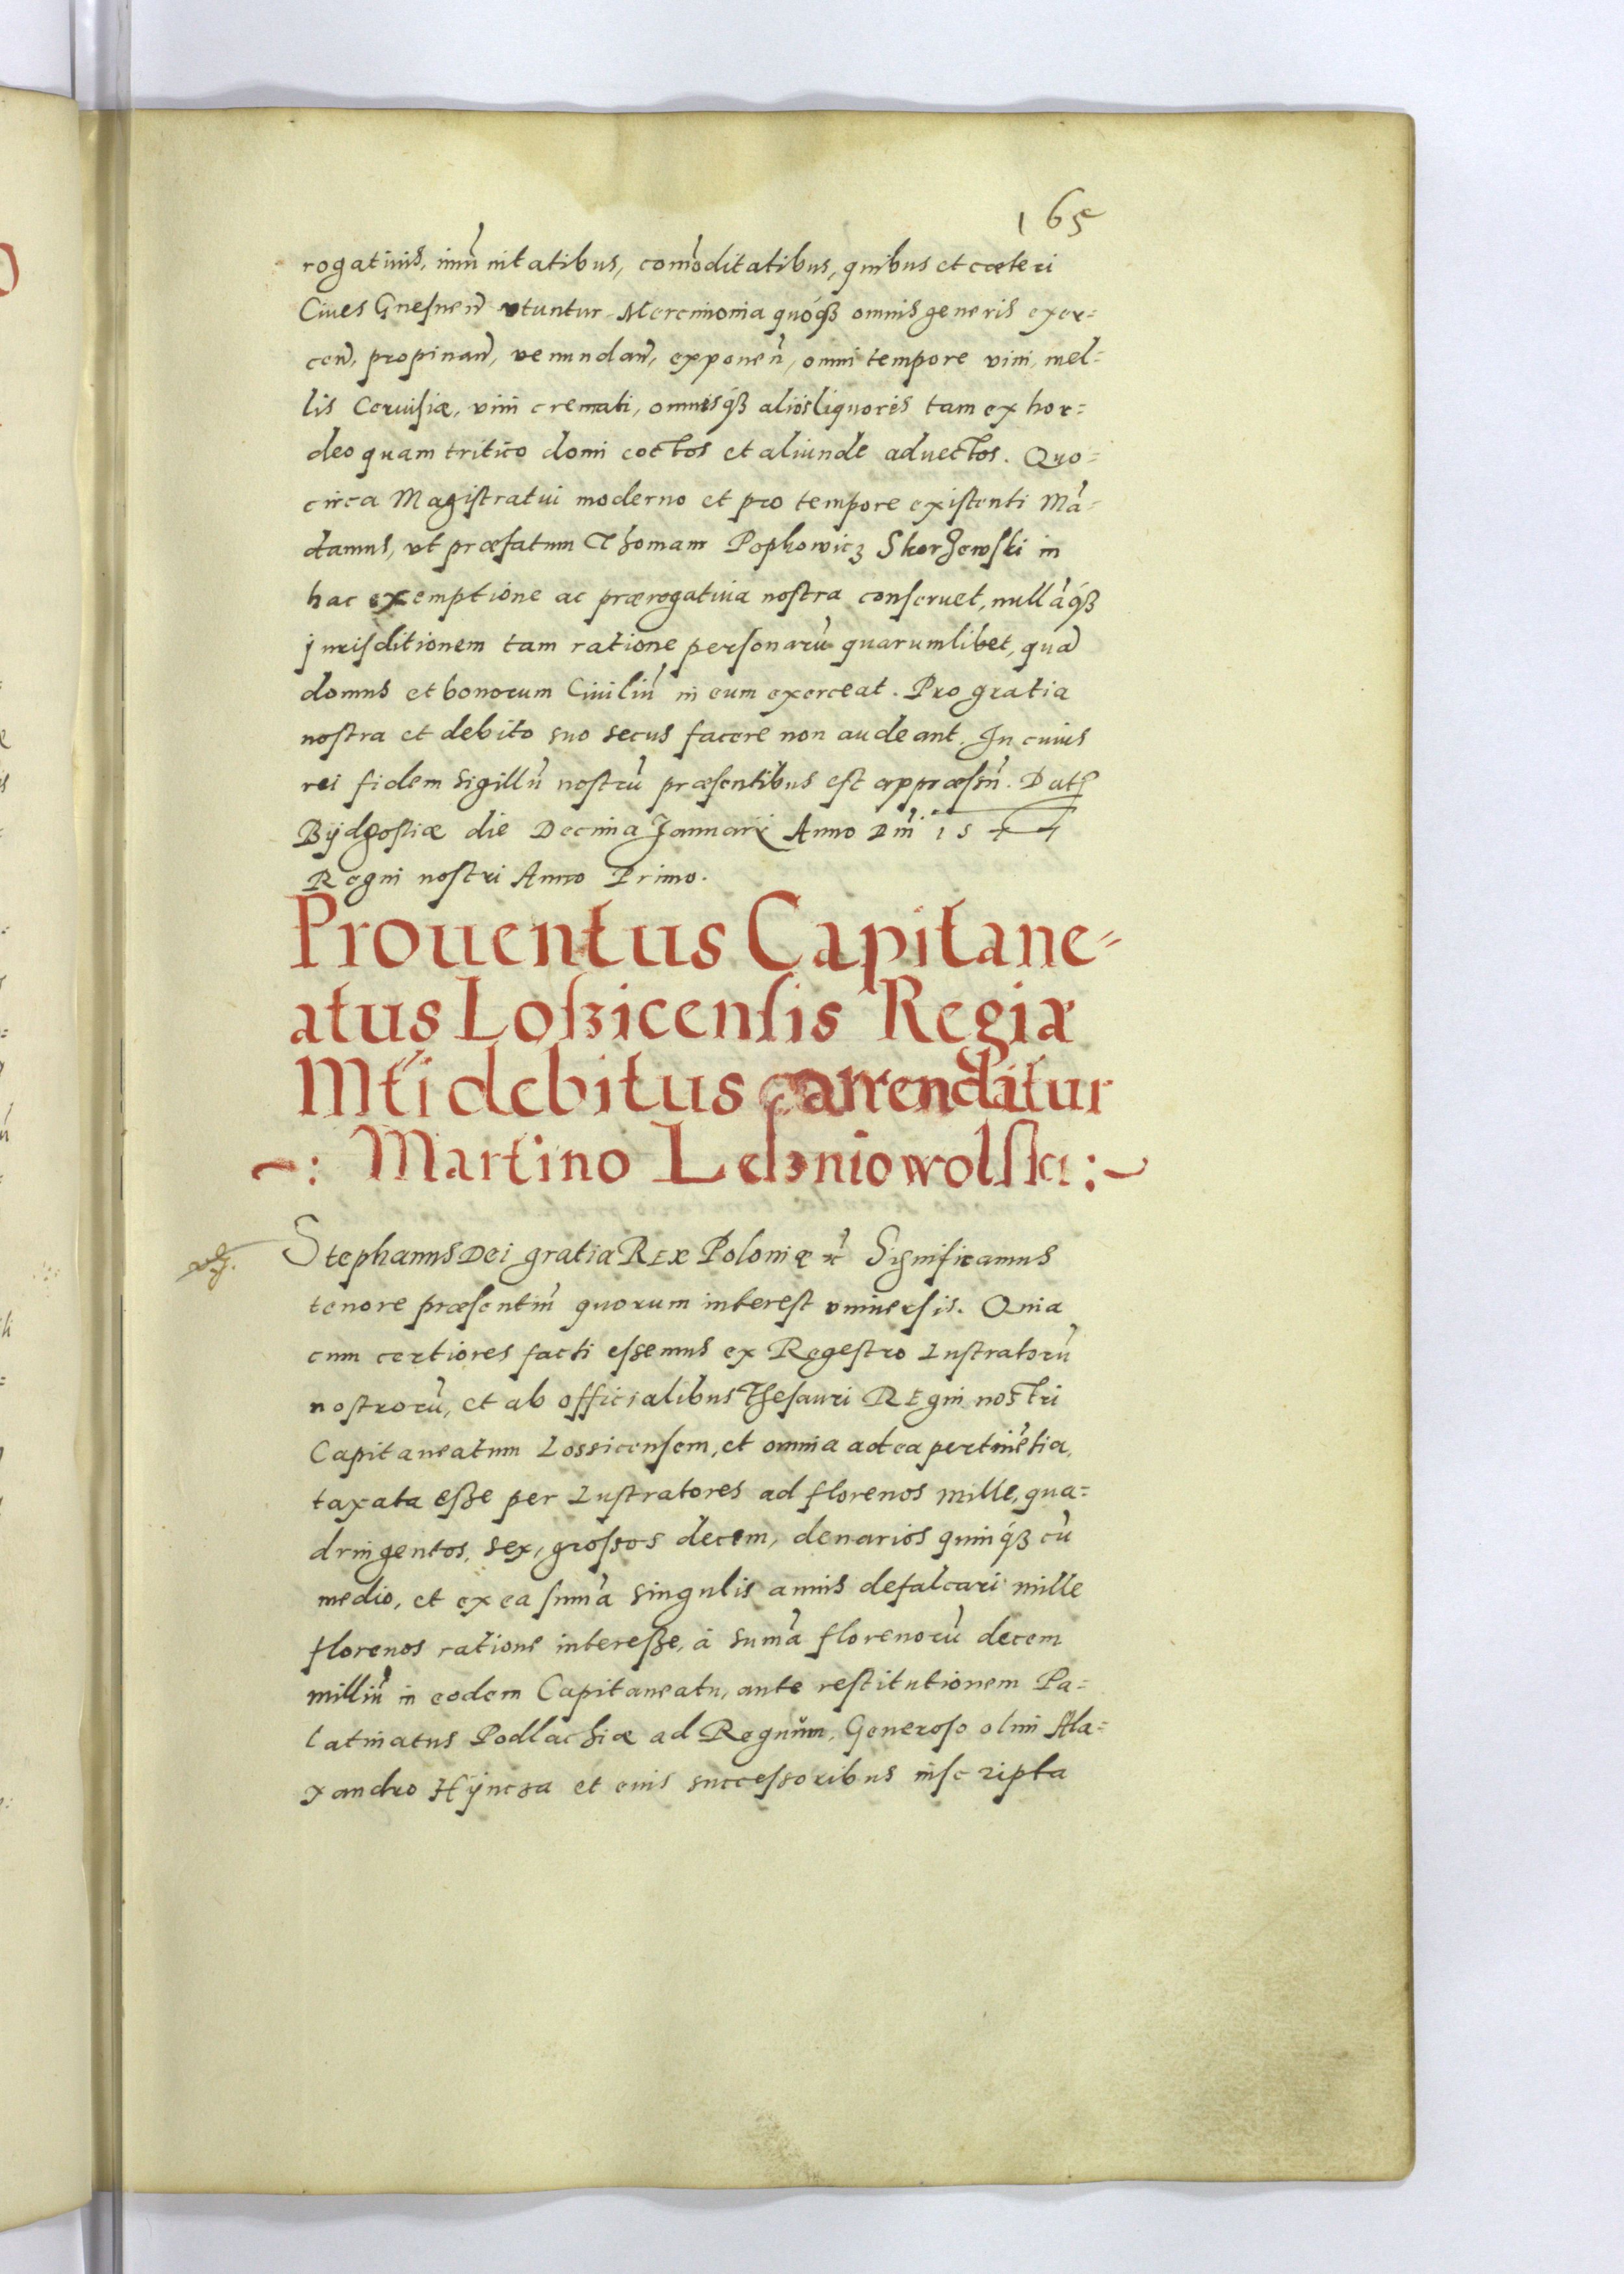 165
rogatiuis, im̃unitatibus, com̃oditatibus, quibus et cæteri
Ciues Gnesnen̄ vtuntur Mercimonia quóq3 omnis generis exer=
cen̄, propinan̄, venundan̄, exponen̄, omni tempore vini, mel=
lis Ceruisiæ, vini cremati, omnisq́3 aliósliquores tam ex hor=
deo quam tritico domi coctos et aliunde aduectos. Quo=
circa Magistratui moderno et pro tempore existenti Mā=
damus, vt præfatum Thomam Popkowicz Skorzewski in
hac exemptione ac prærogatiua nostra conseruet, nullāq́3
jurisditionem tam ratione personarū quarumlibet, quā
domus et bonorum Ciuiliū in eum exerceat. Pro gratia
nostra et debito suo secus facere non audeant. In cuius
rei fidem sigillū nostrū præsentibus est appræssū. Datꝭ
Bÿdgostiæ die Decima Januarij Anno Dni 1577
Regni nostri Anno Primo.
Prouentus Capitane=
atus Loßicensis Regiæ
Mt̃i debitus arrenditur
~: Martino Leßniowolski :~
Stephanus Dei gratia REx Poloniæ ꝛc̄ Significamus
tenore præsentiū quorum interest vniuersis. Quia
cum certiores facti essemus ex Regestro Lustratorū
nostrorū, et ab officialibus Thesauri REgni nostri
Capitaneatum Lossicensem, et omnia ad ea pertinētia,
taxata eße per Lustratores ad florenos mille, qua=
dringentos, sex, grossos decem, denarios quinq́3 cū
medio, et ex ea sum̃a singulis annis defalcari mille
florenos ratione intereße, à sum̃a florenorū decem
milliū in eodem Capitaneatu, ante restitutionem Pa=
latinatus Podlachiæ ad Regnum, Generoso olim Ala=
xandro Hÿncza et euis successoribus inscripta